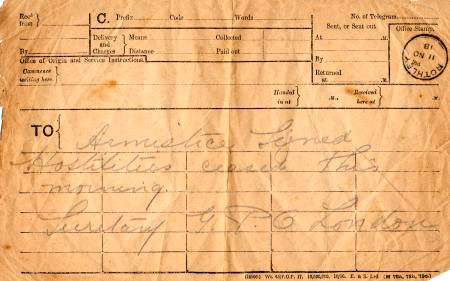 Rec'd from
C.
Prefix Code Words
No. of Telegram
Sent, or Sent out
Office Stamp.
Delivery and Charges
Means
Distance
Collected
Paid out
At .M.
By
By
Returned at .M.
ROTHLEY
11 NO 18
Office of Origin and Service Instructions.
Commence writing here.
Handed in at .M.,
Received here at .M.
TO
Armistice Signed
Hostilities ceased this
morning.
Secretary G.P.O London
E. & S. Ltd